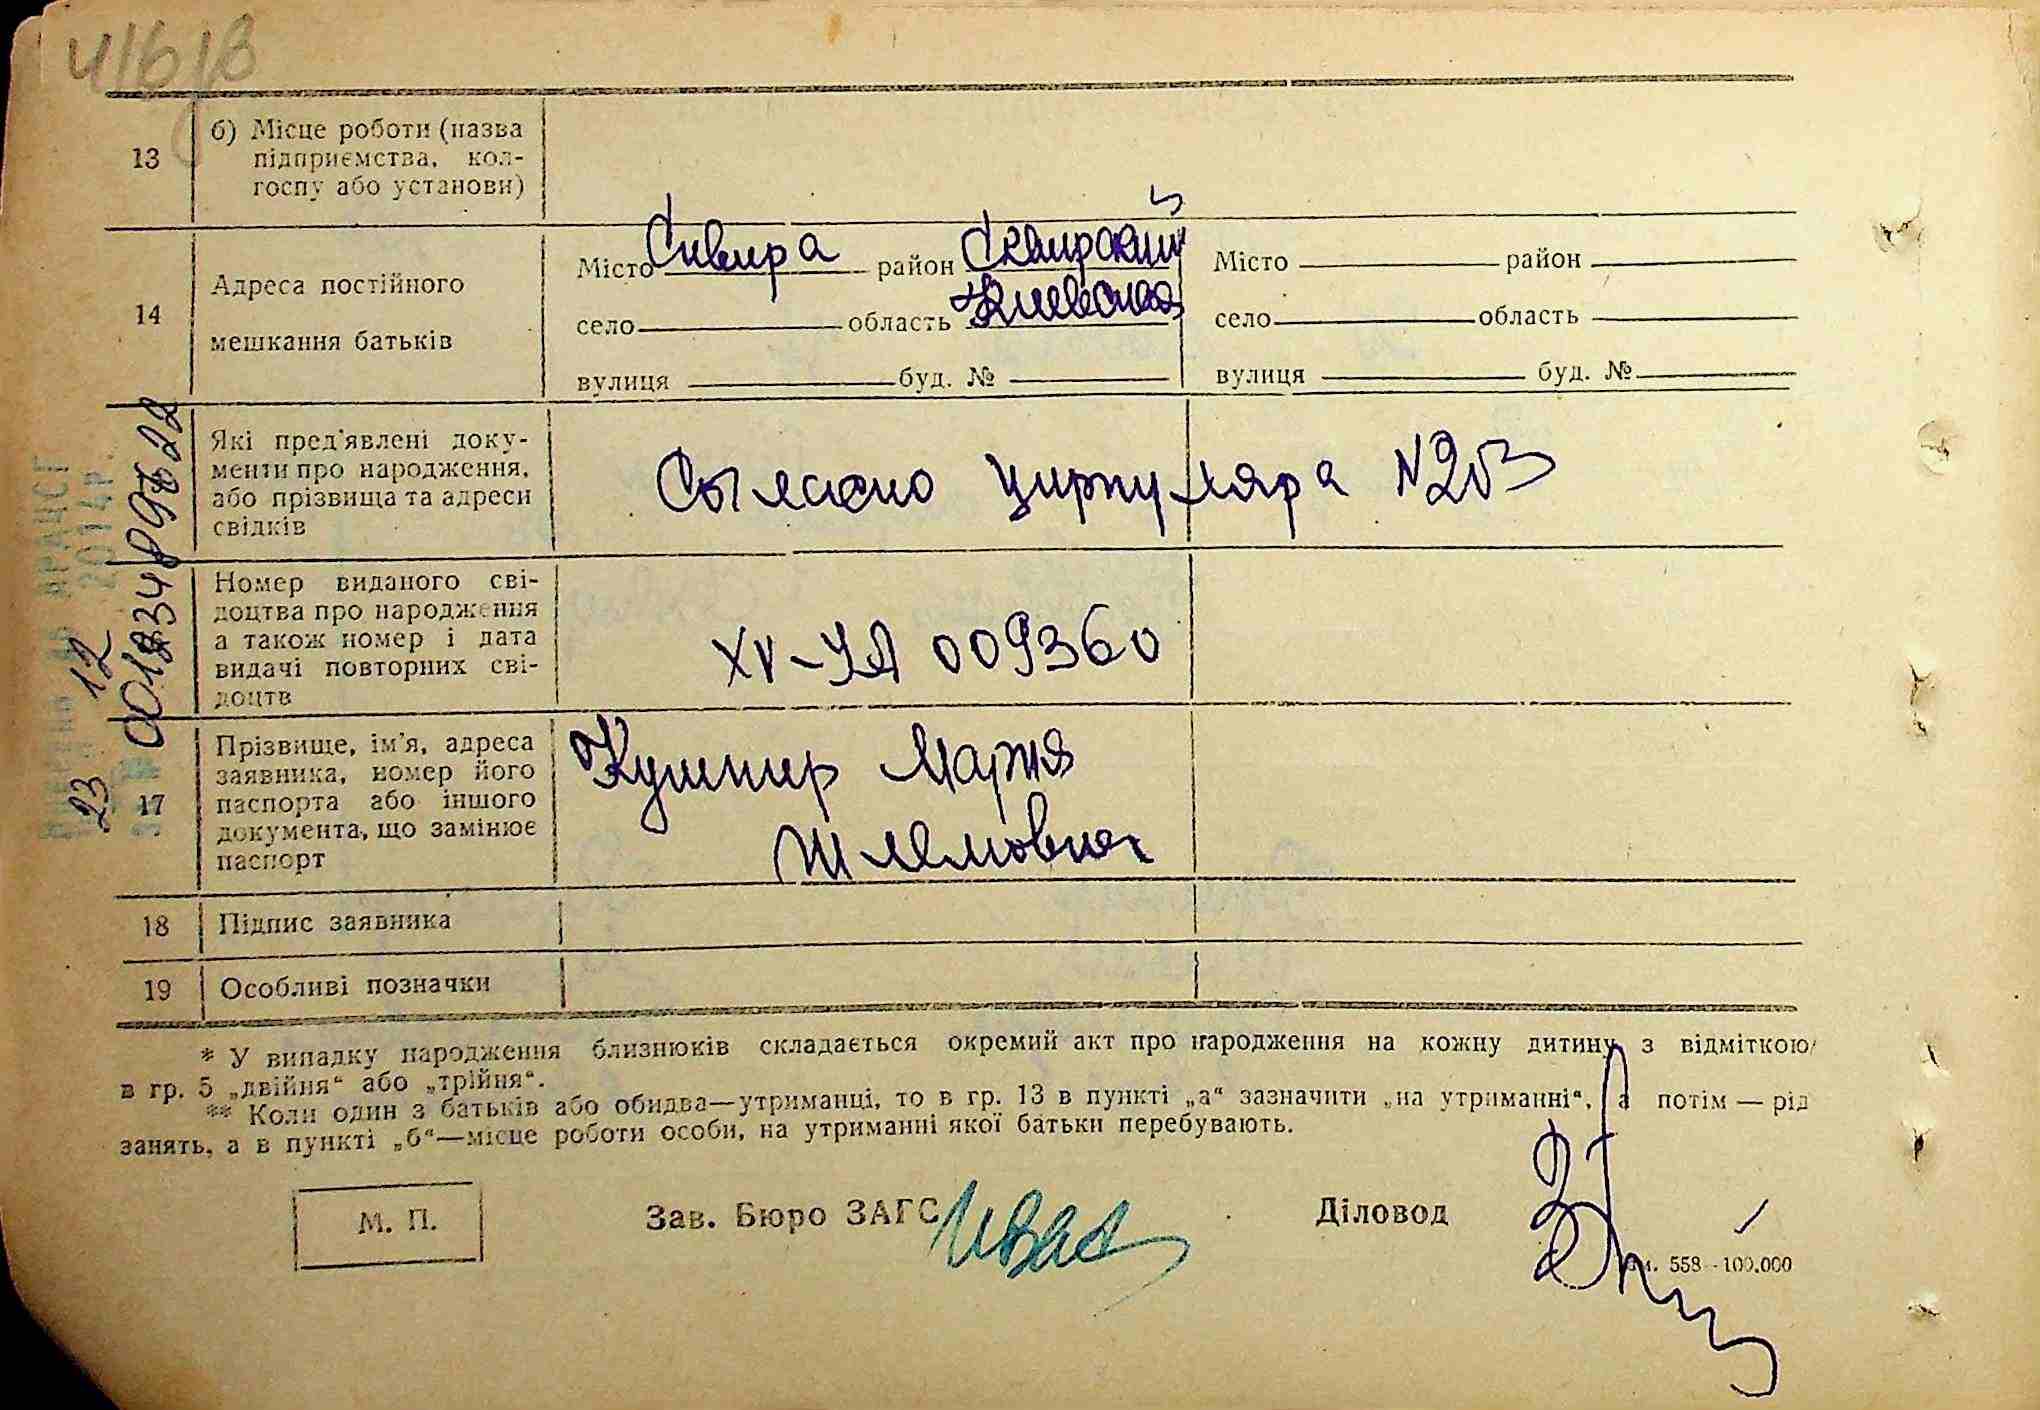 416/в
13
б) Місце роботи (назва
підприємства, кол-
госпу або установи)
14
Адреса постійного
мешкання батьків
Місто Сквира район Сквирский
село область Киевская
вулиця буд. №
Місто район
село область
вулиця буд. №
Які пред'явлені доку-
менти про народження,
або прізвища та адреси
свідків
Согласно циркуляра №203
Номер виданого сві-
доцтва про народження
а також номер і дата
видачі повторних сві-
доцтв
XV-УЯ 009360
17
Прізвище, ім'я, адреса
заявника, номер його
паспорта або іншого
документа, що замінює
паспорт
Кушнир Мария
Шлемовна
18
Підпис заявника
19
Особливі позначки
* У випадку народження близнюків складається окремий акт про народження на кожну дитину з відміткою
в гр. 5 „двійня“ або „трійня“.
** Коли один з батьків або обидва—утриманці, то в гр. 13 в пункті „а“ зазначити „на утриманні“, а потім — рід
занять, а в пункті „б“—місце роботи особи, на утриманні якої батьки перебувають.
М. П.
Зав. Бюро ЗАГС
Діловод
558—100.000
23 12
2014р.